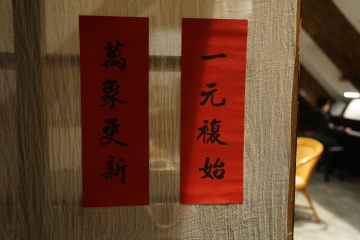 一元複始
萬象更新